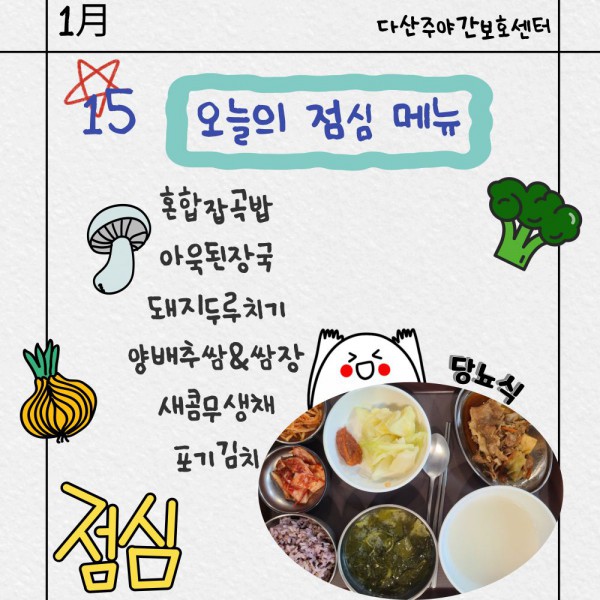 1月
다산주야간보호센터
15
오늘의 점심 메뉴
혼합잡곡밥
아욱된장국
돼지두루치기
양배추쌈&쌈장
새콤무생채
포기김치
당뇨식
점심